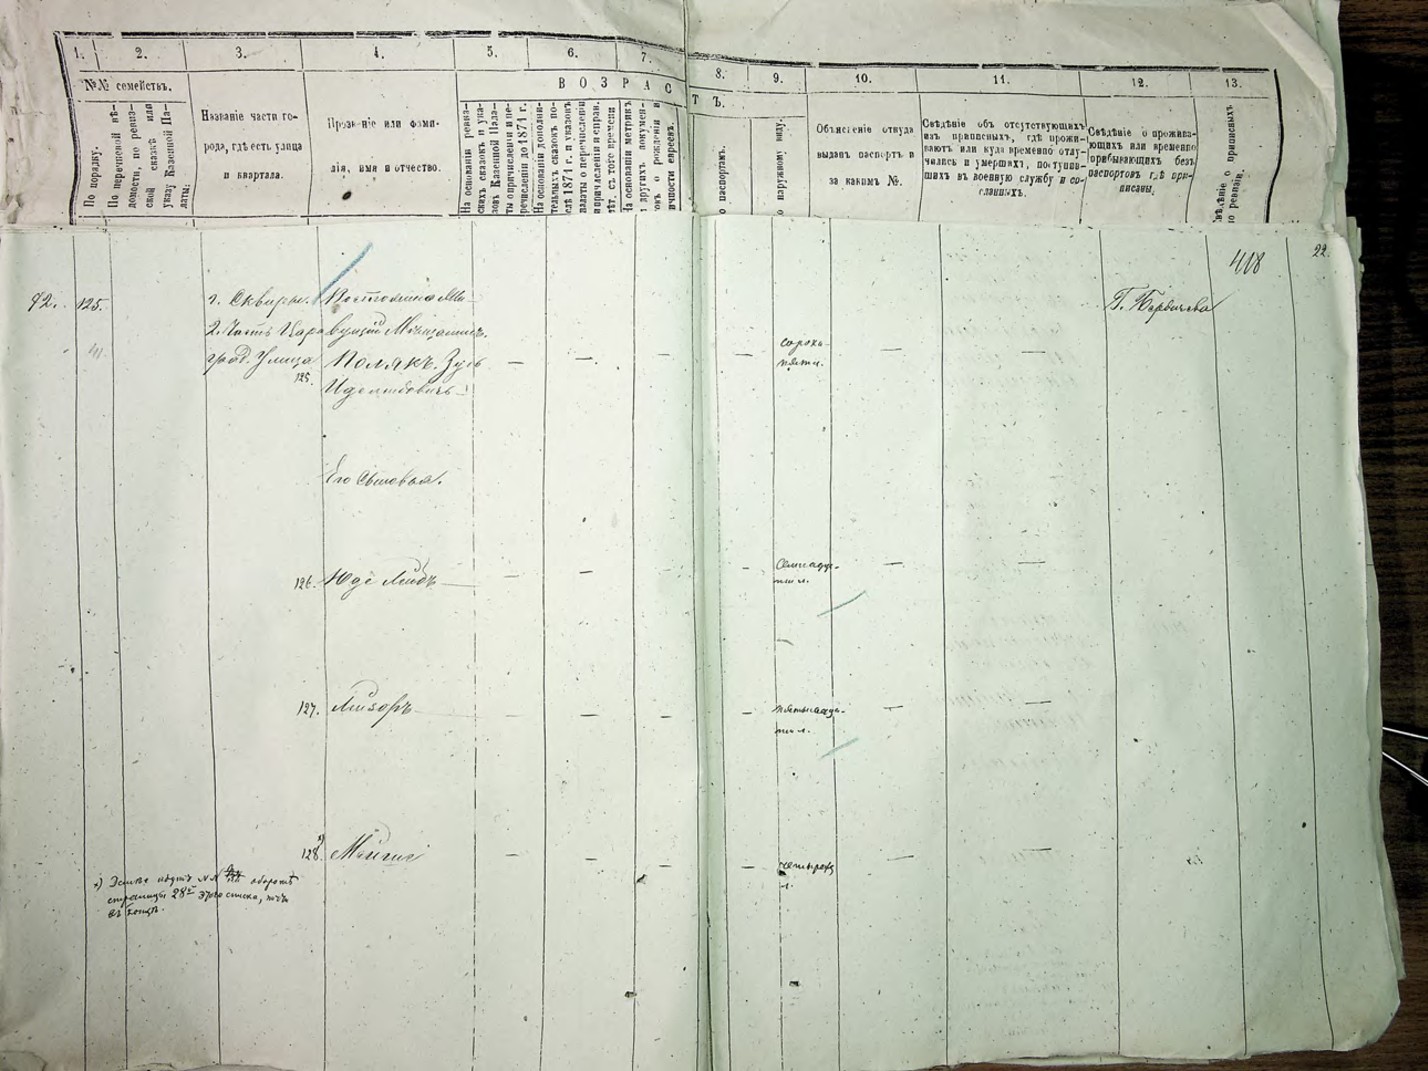 1. 2. 3. 4. 5. 6. 7. 8. 9. 10. 11. 12. 13.
№№ семействъ.
По порядку.
По перечневой вѣ-
домости, по ревиз-
ской сказкѣ или
указу Казенной Па-
латы:
Названіе части го-
рода, гдѣ есть улица
и квартала.
Прозваніе или фами-
лія, имя и отчество.
ВОЗРАСТЪ.
На основаніи ревиз-
скихъ сказокъ и ука-
зовъ Казенной Пала-
ты о причисленіи и пе-
речисленіи до 1871 г.
На основаніи дополни-
тельныхъ сказокъ по-
слѣ 1871 г. и указовъ
палаты о перечисленіи
и причисленіи и справ.
лѣт. съ того времени
На основаніи метрикъ
и другихъ докумен-
товъ о рожденіи и
личности евреевъ.
о паспортамъ.
о наружному виду.
Объясненіе откуда
выданъ паспортъ и
за какимъ №.
Свѣдѣніе объ отсутствующихъ
изъ приписныхъ, гдѣ прожи-
ваютъ или куда временно отлу-
чились и умершихъ, поступив-
шихъ въ военную службу и со-
сланныхъ.
Свѣдѣніе о прожива-
ющихъ или временно
прибывающихъ безъ
паспортовъ гдѣ при-
писаны.
вѣдѣніе о приписныхъ
по ревизіи.
418
22.
92. 125.
г. Сквиры.
2. Часть Цара
град. Улица
125.
41.
Мѣщанинъ.
Полякъ. Зусь
—
—
—
—
сорока
пяти.
—
—
Г. Бердичева
Его Сыновья.
126. Юде Лейбъ
—
—
—
—
—
—
127. Лейзоръ
—
—
—
—
пятнадц-
ти л.
—
—
128.
—
—
—
—
четырехъ
л.
—
—
страницы 28й этого списка,
въ концѣ.